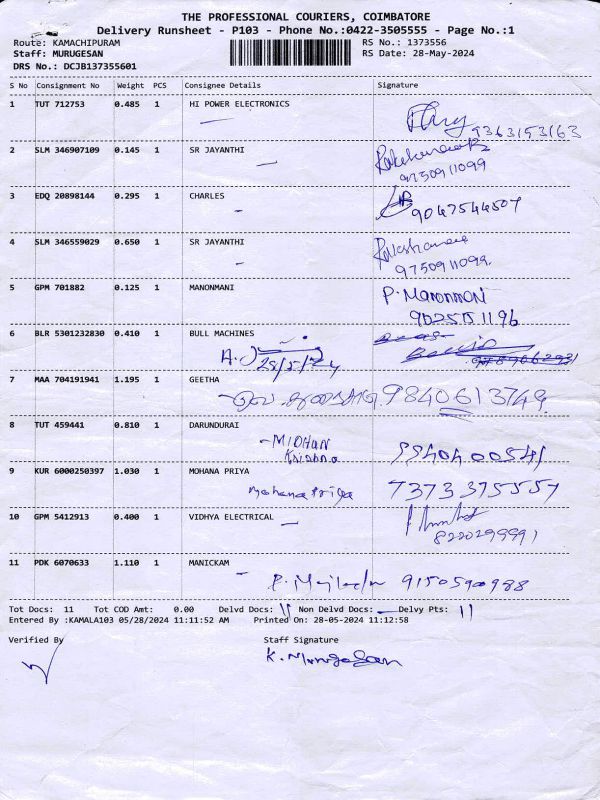 THE PROFESSIONAL COURIERS, COIMBATORE
Delivery Runsheet - P103 - Phone No.:0422-3505555 - Page No.:1
Route: KAMACHIPURAM RS No.: 1373556
Staff: MURUGESAN RS Date: 28-May-2024
DRS No.: DCJB137355601
S No Consignment No Weight PCS Consignee Details Signature
1 TUT 712753 0.485 1 HI POWER ELECTRONICS
9363153163
2 SLM 346907109 0.145 1 SR JAYANTHI
9750911099
3 EDQ 20898144 0.295 1 CHARLES
9047544507
4 SLM 346559029 0.650 1 SR JAYANTHI
9750911099
5 GPM 701882 0.125 1 MANONMANI P. Manonmani
9025151196
6 BLR 5301232830 0.410 1 BULL MACHINES
28/5/24
7 MAA 704191941 1.195 1 GEETHA
9840613749
8 TUT 459441 0.810 1 DARUNDURAI
MIDHUN
Krishna 9940400541
9 KUR 6000250397 1.030 1 MOHANA PRIYA
Mohana Priya 7373375557
10 GPM 5412913 0.400 1 VIDHYA ELECTRICAL
8220299991
11 PDK 6070633 1.110 1 MANICKAM
9150590988
Tot Docs: 11 Tot COD Amt: 0.00 Delvd Docs: 11 Non Delvd Docs: Delvy Pts: 11
Entered By :KAMALA103 05/28/2024 11:11:52 AM Printed On: 28-05-2024 11:12:58
Verified By Staff Signature
K. Murugesan